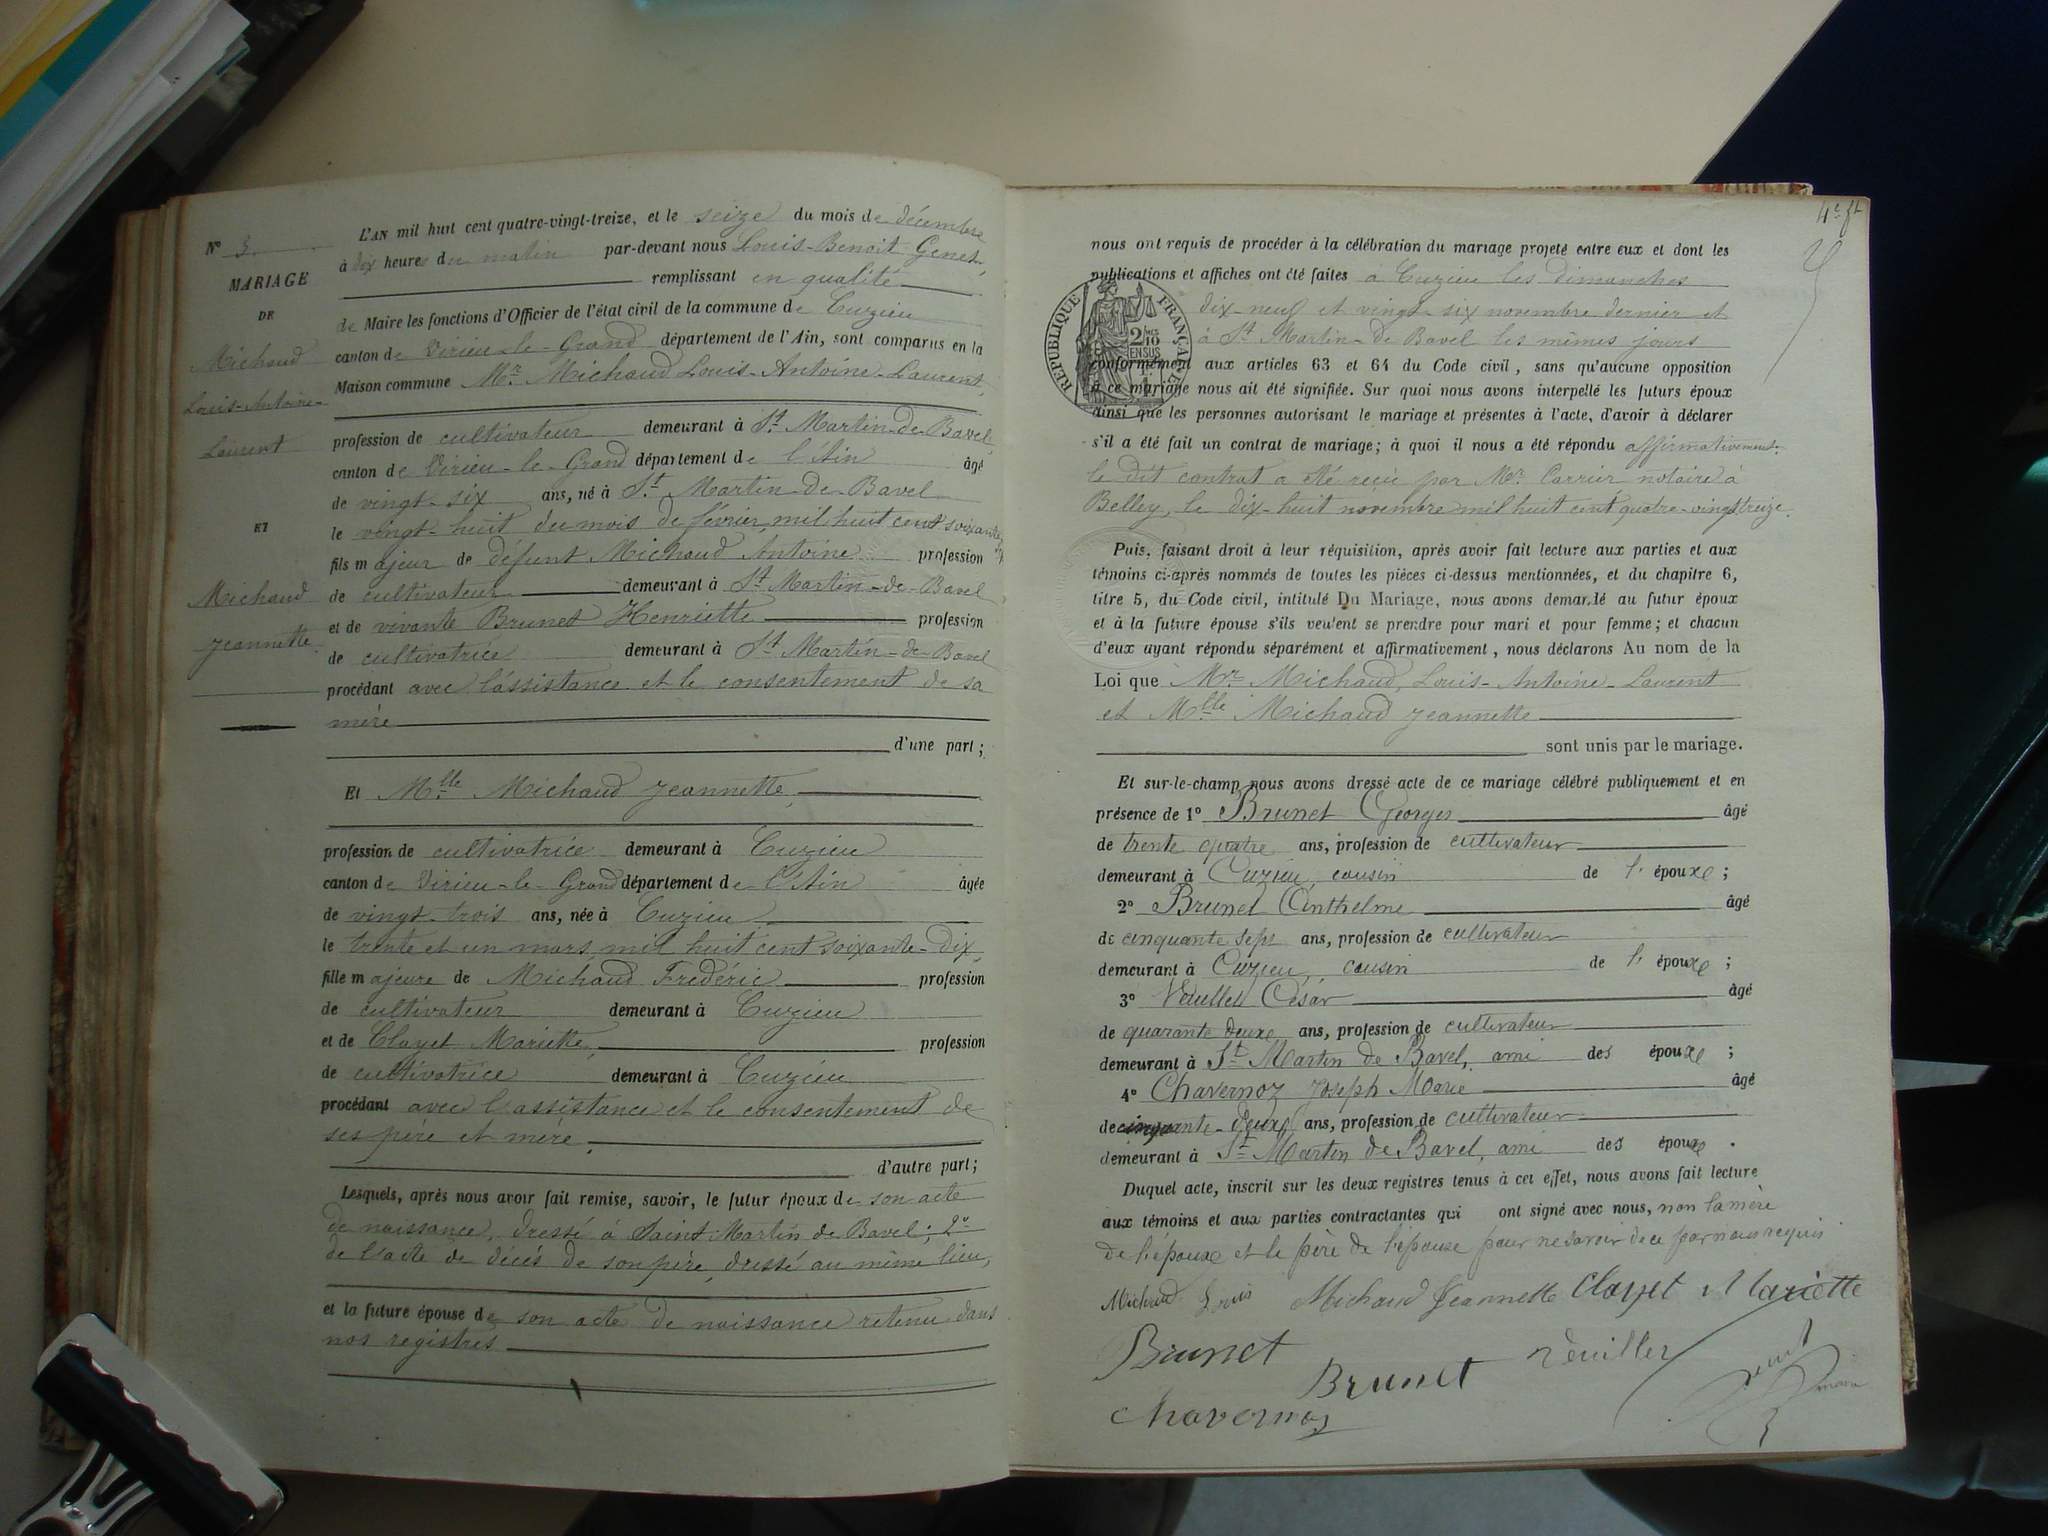 N° 3.
MARIAGE
DE
Michaud
Louis-Antoine-
Laurent
ET
Michaud
Jeannette
L'AN mil huit cent quatre-vingt-treize, et le seize du mois de décembre
à dix heures du matin par-devant nous Louis-Benoit Genet,
remplissant en qualité
de Maire les fonctions d'Officier de l'état civil de la commune de Cuzieu
canton de Virieu-le-Grand département de l'Ain, sont comparus en la
Maison commune Mr. Michaud Louis-Antoine-Laurent,
profession de cultivateur demeurant à St. Martin-de-Bavel,
canton de Virieu-le-Grand département de l'Ain âgé
de vingt-six ans, né à St. Martin-de-Bavel
le vingt-huit du mois de février mil huit cent soixante
fils majeur de défunt Michaud Antoine profession
de cultivateur demeurant à St. Martin-de-Bavel
et de vivante Brunet Henriette profession
de cultivatrice demeurant à St. Martin-de-Bavel
procédant avec l'assistance et le consentement de sa
mère
d'une part;
Et Mlle Michaud Jeannette,
profession de cultivatrice demeurant à Cuzieu
canton de Virieu-le-Grand département de l'Ain âgée
de vingt-trois ans, née à Cuzieu
le trente et un mars mil huit cent soixante-dix,
fille majeure de Michaud Frédéric profession
de cultivateur demeurant à Cuzieu
et de Clayet Mariette, profession
de cultivatrice demeurant à Cuzieu
procédant avec l'assistance et le consentement de
ses père et mère.
d'autre part;
Lesquels, après nous avoir fait remise, savoir, le futur époux de son acte
de naissance, dressé à Saint Martin de Bavel; 2°
de l'acte de décés de son père, dressé au même lieu,
et la future épouse de son acte de naissance retenu dans
nos registres
4e ft
nous ont requis de procéder à la célébration du mariage projeté entre eux et dont les
publications et affiches ont été faites à Cuzieu les dimanches
dix-neuf et vingt-six novembre dernier et
à St. Martin-de Bavel les mêmes jours
RÉPUBLIQUE FRANÇAISE
2/10
EN SUS
conformément aux articles 63 et 64 du Code civil, sans qu'aucune opposition
à ce mariage nous ait été signifiée. Sur quoi nous avons interpellé les futurs époux
ainsi que les personnes autorisant le mariage et présentes à l'acte, d'avoir à déclarer
s'il a été fait un contrat de mariage; à quoi il nous a été répondu affirmativement.
le dit contrat a été reçu par Me. Carrier notaire à
Belley, le dix-huit novembre mil huit cent quatre-vingt treize.
Puis, faisant droit à leur réquisition, après avoir fait lecture aux parties et aux
témoins ci-après nommés de toutes les pièces ci-dessus mentionnées, et du chapitre 6,
titre 5, du Code civil, intitulé Du Mariage, nous avons demandé au futur époux
et à la future épouse s'ils veulent se prendre pour mari et pour femme; et chacun
d'eux ayant répondu séparément et affirmativement, nous déclarons Au nom de la
Loi que Mr. Michaud, Louis-Antoine-Laurent
et Mlle Michaud Jeannette
sont unis par le mariage.
Et sur-le-champ nous avons dressé acte de ce mariage célébré publiquement et en
présence de 1° Brunet Georges âgé
de trente quatre ans, profession de cultivateur
demeurant à Cuzieu, cousin de l' époux;
2° Brunet Anthelme âgé
de cinquante sept ans, profession de cultivateur
demeurant à Cuzieu, cousin de l' époux;
3° Veuillet César âgé
de quarante deux ans, profession de cultivateur
demeurant à St. Martin de Bavel, ami des époux;
4° Chavernoz Joseph Marie âgé
de cinquante-deux ans, profession de cultivateur
demeurant à St. Martin de Bavel, ami des époux.
Duquel acte, inscrit sur les deux registres tenus à cet effet, nous avons fait lecture
aux témoins et aux parties contractantes qui ont signé avec nous, non la mère
de l'époux et le père de l'épouse pour ne savoir de ce par nous requis
Michaud Louis Michaud Jeannette Clayet Mariette
Brunet Brunet Veuillet
Chavernoz